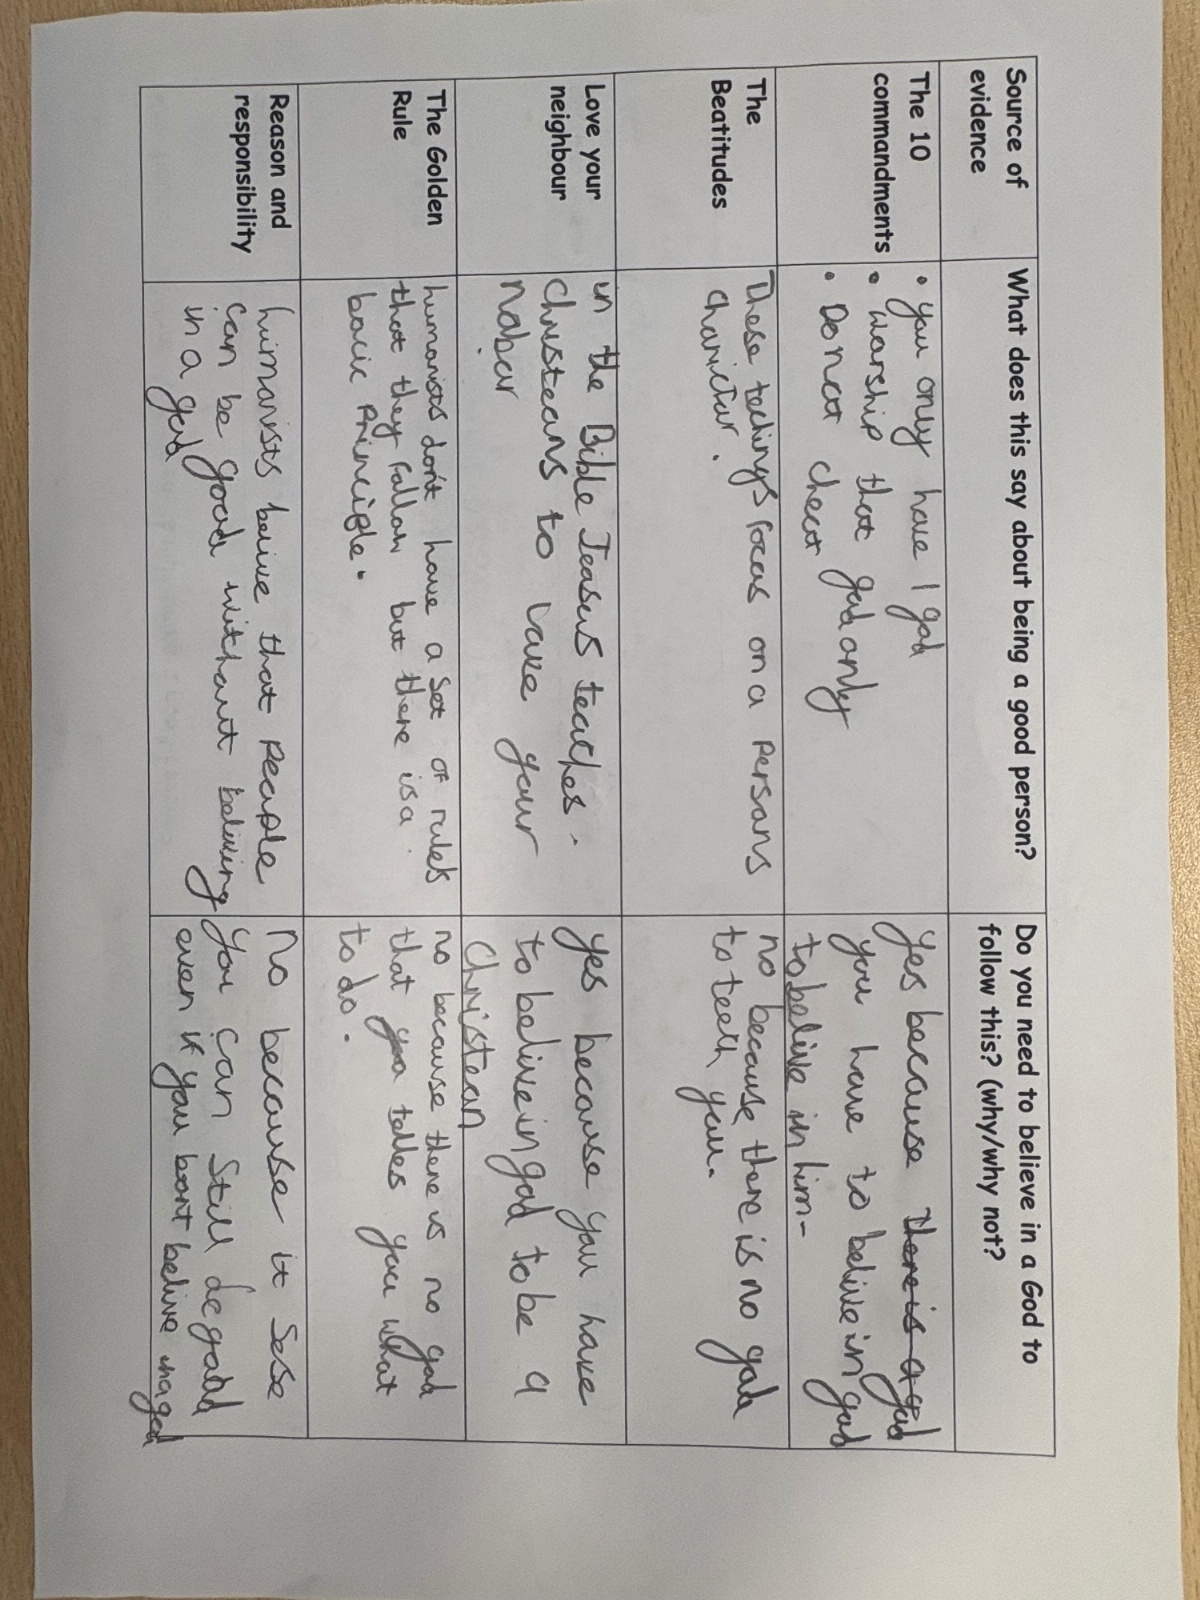 Source of
evidence
What does this say about being a good person?
Do you need to believe in a God to
follow this? (why/why not?
The 10
commandments
• you only have 1 god
• warship that god only
• Do not cheat
yes because there is a god
you have to belive in god
to belive in him-
The
Beatitudes
These techings focus on a Persans
charictar.
no because there is no god
to teeth you.
Love your
neighbour
in the Bible Jeasus teaches.
Christeans to Love your
nabar
yes because you have
to belive in god to be a
Christean
The Golden
Rule
humanists don't have a set of rules
that they follow but there is a
bacic Principle.
no because there is no god
that you telles you what
to do.
Reason and
responsibility
humanists belive that People
can be good without beliving
in a god
No because it sase
you can still be good
even if you dont belive in a god